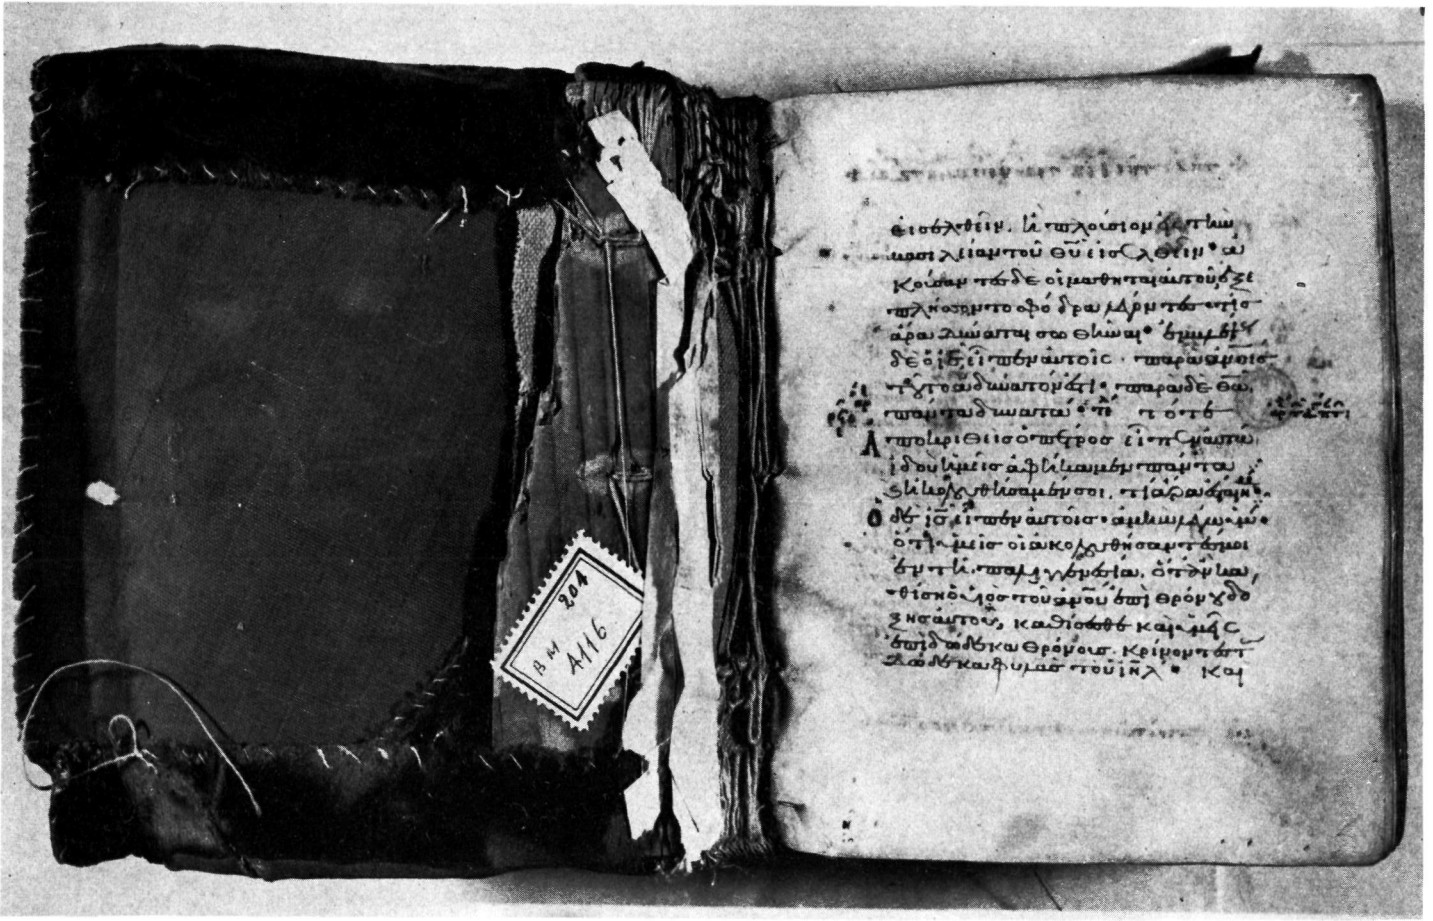 204
BM
A116
εισελθειν. ἢ πλούσιον εἰς τὴν
βασιλείαν τοῦ θῦ εἰσελθεῖν· ἀ
κούσαντες δὲ οἱ μαθηταὶ αὐτοῦ ἐξε
πλήσσοντο σφόδρα λέγοντες· τίς
ἄρα δύναται σωθῆναι·
δὲ ὁ ἰς εἶπεν αὐτοῖς· παρὰ ἀνοις
τοῦτο ἀδύνατόν ἐστι· παρὰ δὲ θῶ
πάντα δυνατά· τότε
Ἀποκριθεὶς ὁ πέτρος εἶπεν αὐτῶ
ἰδοὺ ἡμεῖς ἀφήκαμεν πάντα
ἠκολουθήσαμέν σοι. τί ἄρα
Ὁ δὲ ἰς εἶπεν αὐτοῖς· ἀμὴν λέγω ὑμῖν·
ὅτι ὑμεῖς οἱ ἀκολουθήσαντές μοι
ἐν τῆ παλιγγενεσία, ὅταν κα
θίση ὁ υἱὸς τοῦ ἀνου ἐπὶ θρόνου δό
ξης αὐτοῦ, καθίσεσθε καὶ ὑμεῖς
ἐπὶ δώδεκα θρόνους. κρίνοντες τ
δώδεκα φυλὰς τοῦ ιηλ· Καὶ